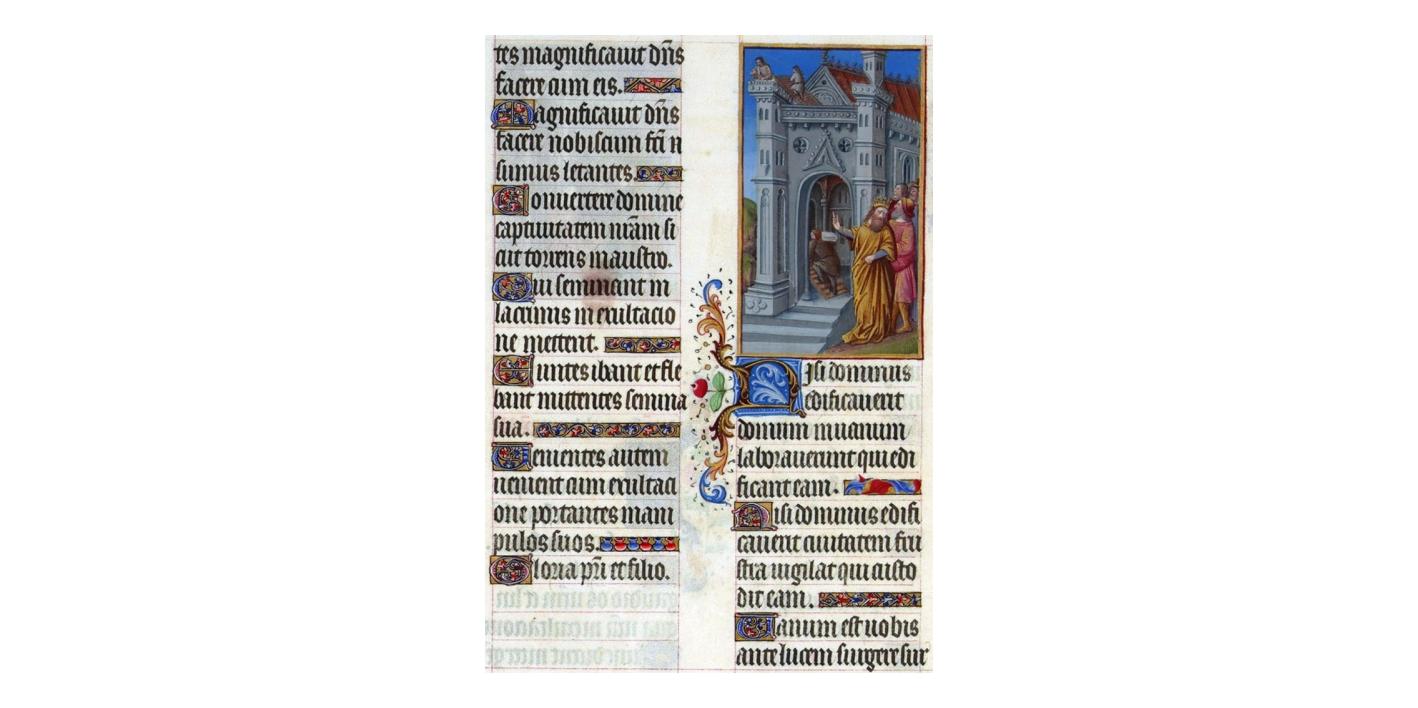 tes magnificauit dn̄s
facere cum eis.
Magnificauit dn̄s
facere nobiscum fcī
sumus letantes.
Conuertere domine
captiuitatem nr̄am si
cut torrens in austro.
Qui seminant in
lacrimis in exultacio
ne mettent.
Euntes ibant et fle
bant mittentes semina
sua.
Uenientes autem
uenient cum exultaci
one portantes mani
pulos suos.
Gloria pr̄i et filio.
Nisi dominus
edificauerit
domum inuanum
laborauerunt qui edi
ficant eam.
Nisi dominus edifi
cauerit ciuitatem fru
stra uigilat qui custo
dit eam.
Uanum est uobis
ante lucem surgere sur